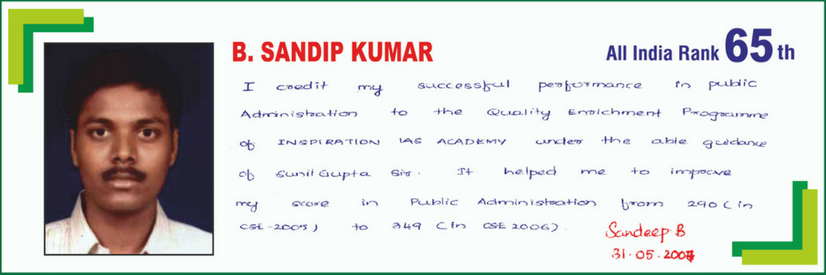 B. SANDIP KUMAR
All India Rank 65th
I credit my successful performance in public
Administration to the Quality Enrichment Programme
of INSPIRATION IAS ACADEMY under the able guidance
of Sunil Gupta Sir. It helped me to improve
my score in Public Administration from 290 (in
CSE-2005) to 349 (In CSE 2006).
Sandeep B
31.05.2007